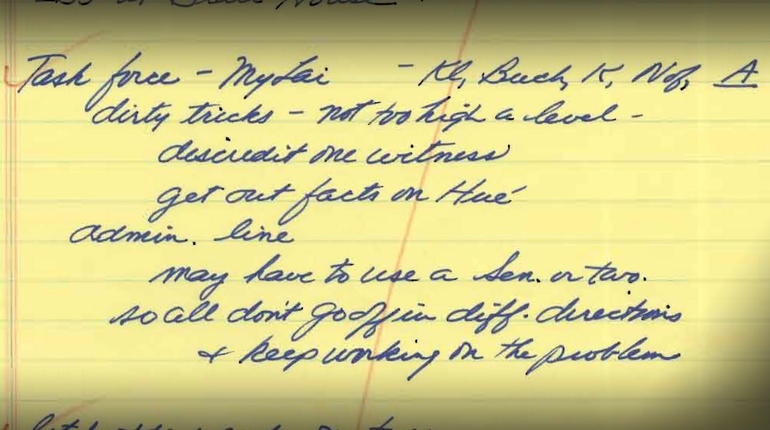 Task force - My Lai - Kl, Buch, K, Nof, A
dirty tricks - not too high a level -
discredit one witness
get out facts on Hué
admin. line
may have to use a Sen. or two.
so all don't go off in diff. directions
& keep working on the problem